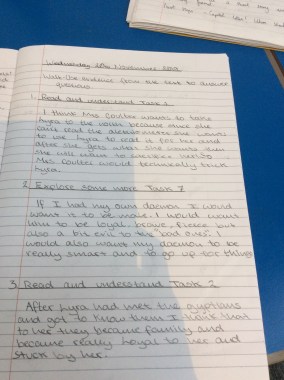 Wednesday 20th November 2019
Wish: Use evidence from the text to answer
questions
1. Read and understand Task 1
I think Mrs Coulter wants to take
Lyra to the north because since she
can't read the alethiometer she wants
to use Lyra to read it for her and
after she gets what she wants then
she
Mrs Coulter would technically trick
Lyra.
2. Explore some more Task 7
If I had my own daemon I would
want it to be male. I would want
him to be loyal, brave, fierce but
also a bit evil to the "bad ones". I
would also want my daemon to be
really smart and to go up for things
3. Read and understand Task 2
After Lyra had met the gyptians
and got to know them I think that
to her they became family and
became really loyal to her and
stuck by her.